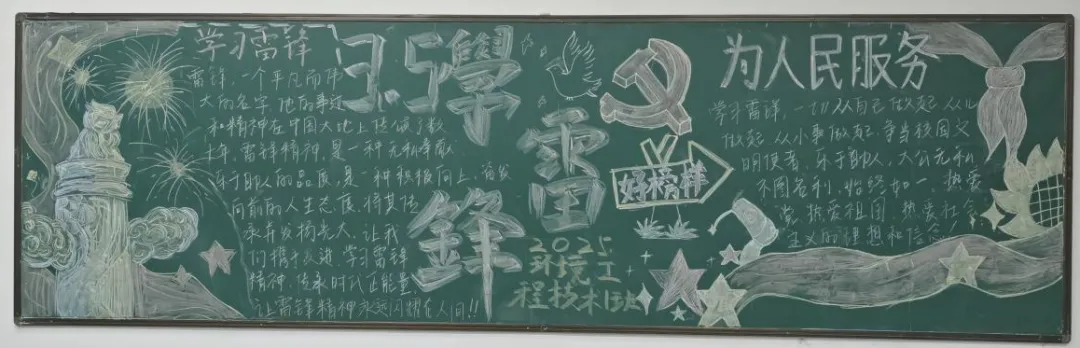 学习雷锋
雷锋，一个平凡而伟
大的名字，他的事迹
和精神在中国大地上传颂了数
十年，雷锋精神，是一种无私奉献
乐于助人的品质，是一种积极向上、奋发
向前的人生态度，将其传
承并发扬光大，让我
们携手永道，学习雷锋
精神，传承时代正能量，
让雷锋精神永远闪耀在人间!!
3.5學
雷
鋒
2025
环境工
程技术1班
好榜样
为人民服务
学习雷锋，一切从自己做起，从心
做起，从小事做起，争当校园文
明使者，乐于助人，大公无私
不图名利，始终如一，热爱
党，热爱祖国，热爱社会
主义的理想和信念!